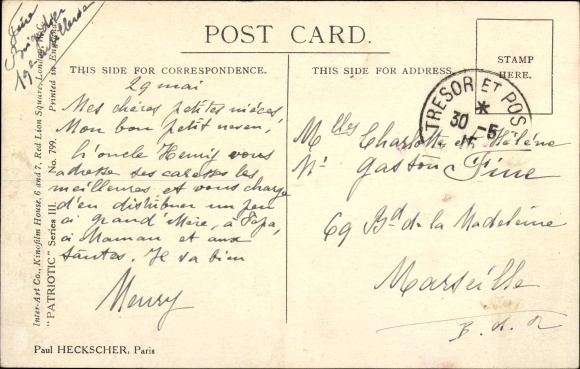 POST CARD.
THIS SIDE FOR CORRESPONDENCE.
THIS SIDE FOR ADDRESS.
STAMP
HERE.
TRESOR ET POS
*
30 -5
29 mai
Mes chères petites nièces,
Mon bon petit neveu,
L'oncle Henry vous
adresse ses caresses les
meilleures et vous charge
d'en distribuer un peu
à grand'Mère, à Papa,
à Maman et aux
tantes. Je va bien
Henry
Melles Charlotte et Hélène
Mr Gaston Fine
69 Bd de la Madeleine
Marseille
B. d. R
Paul HECKSCHER, Paris
Inter-Art Co., Kinofilm House, 6 and 7, Red Lion Square, London,
Printed in England
"PATRIOTIC" Series III. No. 799.
Fine